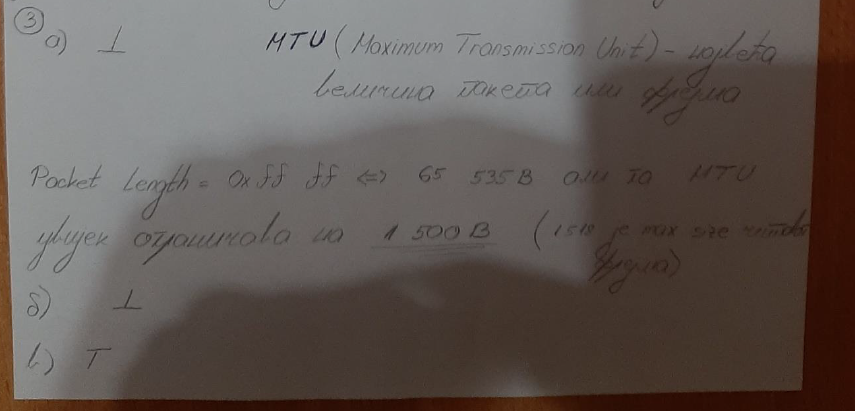 ③
а) ⊥ MTU (Maximum Transmission Unit) - највећа
величина пакета или фрејма
Packet Length = 0xff ff ⇔ 65 535B али га MTU
увијек ограничава на 1 500B (1518 је max size читавог
фрејма)
б) ⊥
в) T